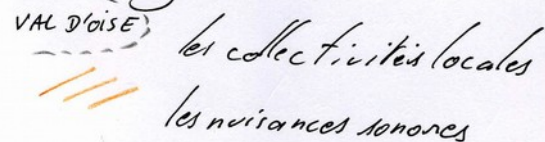 VAL D'OISE
les collectivités locales
les nuisances sonores